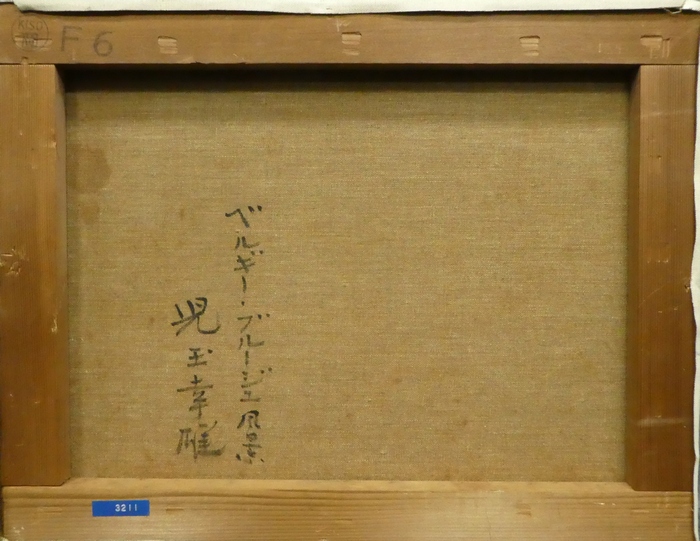 KISO
F6
ベルギー・ブルージュ風景
児玉幸雄
3211